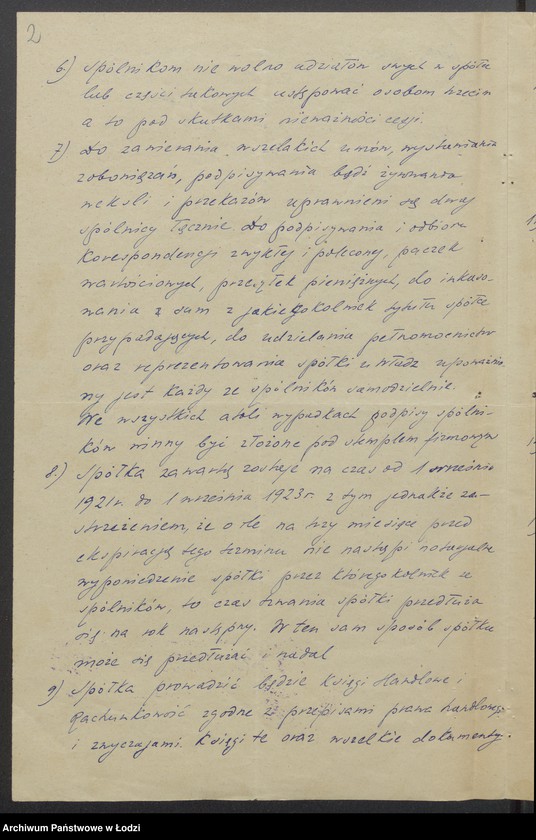 2
6.) Spólnikom nie wolno udziałów swych w spółce
lub części takowych ustępować osobom trzecim
a to pod skutkami nieważności cesji.
7) Do zawierania wszelkich umów, wystawiania
zobowiązań, podpisywania bądź żyrowania
weksli i przekazów uprawnieni są dwaj
spólnicy łącznie. Do podpisywania i odbioru
korespondencji zwykłej i poleconej, paczek
wartościowych, przesyłek pieniężnych, do inkaso-
wania sum z jakiegokolwiek tytułu spółce
przypadających, do udzielania pełnomocnictw
oraz reprezentowania spółki u władz upoważnio
ny jest każdy ze spólników samodzielnie.
We wszystkich atoli wypadkach podpisy spólni-
ków winny być złożone pod stemplem firmowym
8.) Spółka zawartą zostaje na czas od 1 września
1921 r. do 1 września 1923 r. z tym jednakże za-
strzeżeniem, że o ile na trzy miesiące przed
ekspiracją tego terminu nie nastąpi notarjalne
wypowiedzenie spółki przez któregokolwiek ze
spólników, to czas trwania spółki przedłuża
się na rok następny. W ten sam sposób spółka
może się przedłużać i nadal
9) Spółka prowadzić będzie księgi handlowe i
rachunkowość zgodne z przepisami prawa handlowego
i zwyczajami. Księgi te oraz wszelkie dokumenty
Archiwum Państwowe w Łodzi